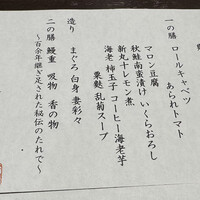 一の膳 ロールキャベツ
あられトマト
マロン豆腐
秋鮭南蛮漬け いくらおろし
新丸十レモン煮
海老 柿玉子 コーヒー海老芋
粟麩 乱菊スープ
造り まぐろ 白身 妻彩々
二の膳 鰻重 吸物 香の物
〜百余年継ぎ足された秘伝のたれで〜